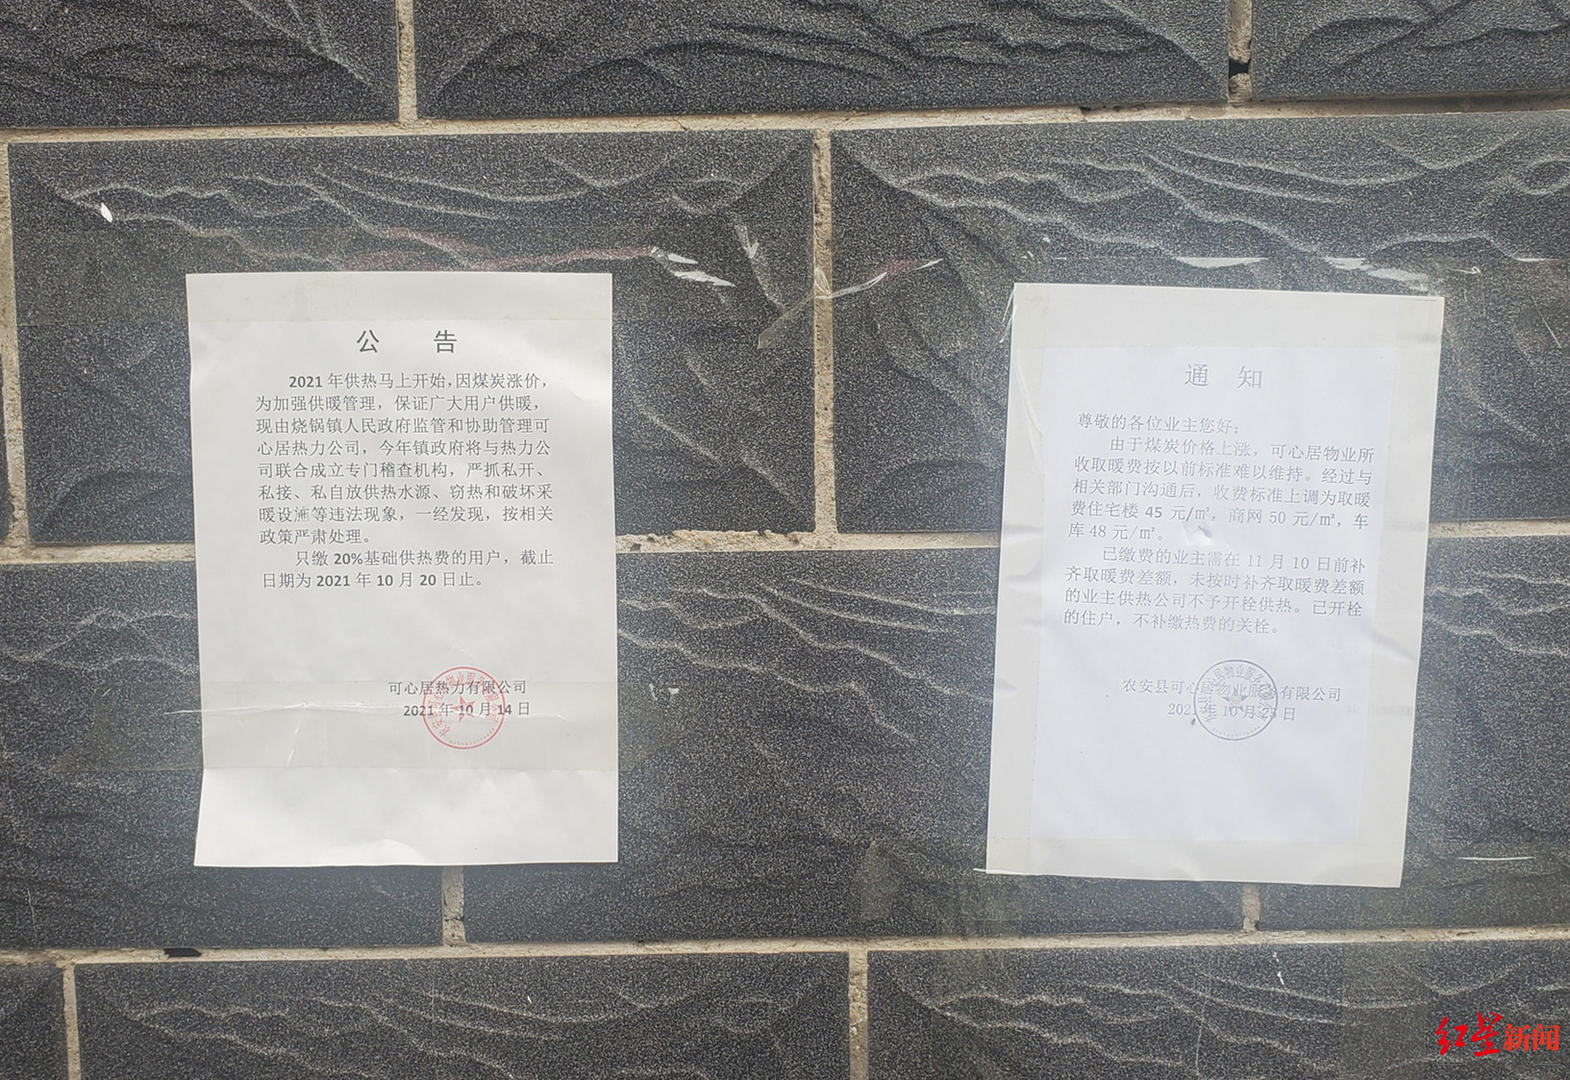 公 告
2021 年供热马上开始，因煤炭涨价，
为加强供暖管理，保证广大用户供暖，
现由烧锅镇人民政府监管和协助管理可
心居热力公司，今年镇政府将与热力公
司联合成立专门稽查机构，严抓私开、
私接、私自放供热水源、窃热和破坏采
暖设施等违法现象，一经发现，按相关
政策严肃处理。
只缴 20%基础供热费的用户，截止
日期为 2021 年 10 月 20 日止。
可心居热力有限公司
2021 年 10 月 14 日
通 知
尊敬的各位业主您好：
由于煤炭价格上涨，可心居物业所
收取暖费按以前标准难以维持。经过与
相关部门沟通后，收费标准上调为取暖
费住宅楼 45 元/㎡，商网 50 元/㎡，车
库 48 元/㎡。
已缴费的业主需在 11 月 10 日前补
齐取暖费差额，未按时补齐取暖费差额
的业主供热公司不予开栓供热。已开栓
的住户，不补缴热费的关栓。
农安县可心居物业服务有限公司
年 10 月 日
红星新闻